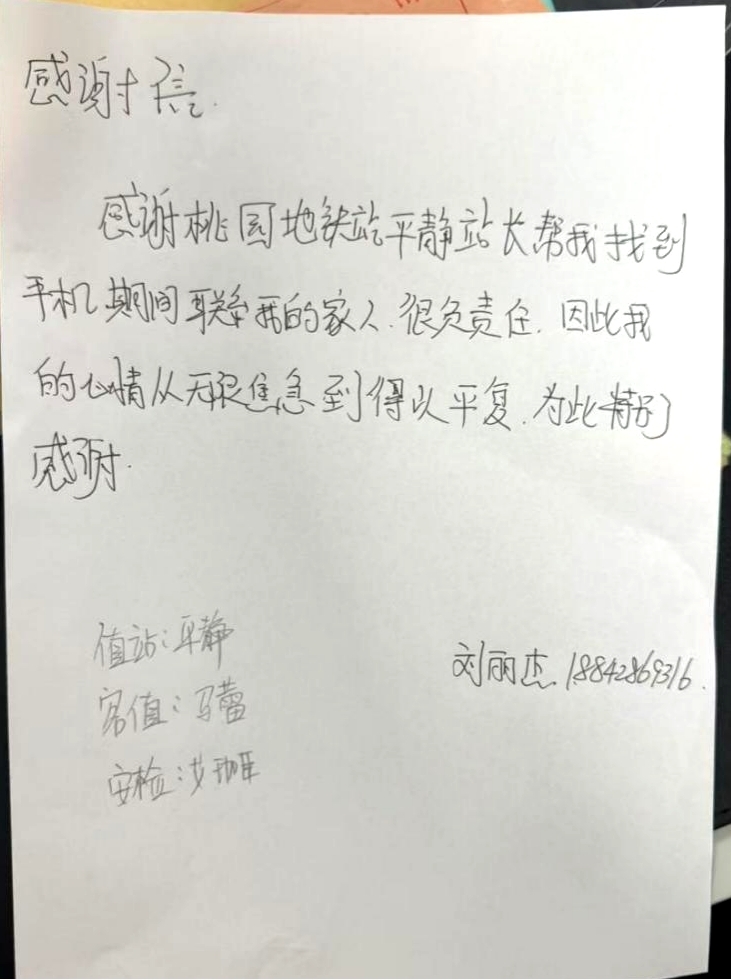 感谢信.
感谢桃园地铁站平静站长帮我找到
手机期间联系我的家人.很负责任.因此我
的心情从无限焦急到得以平复.为此特别
感谢.
值站:平静
客值:马蕾
安检:艾
刘丽杰.18842869316.